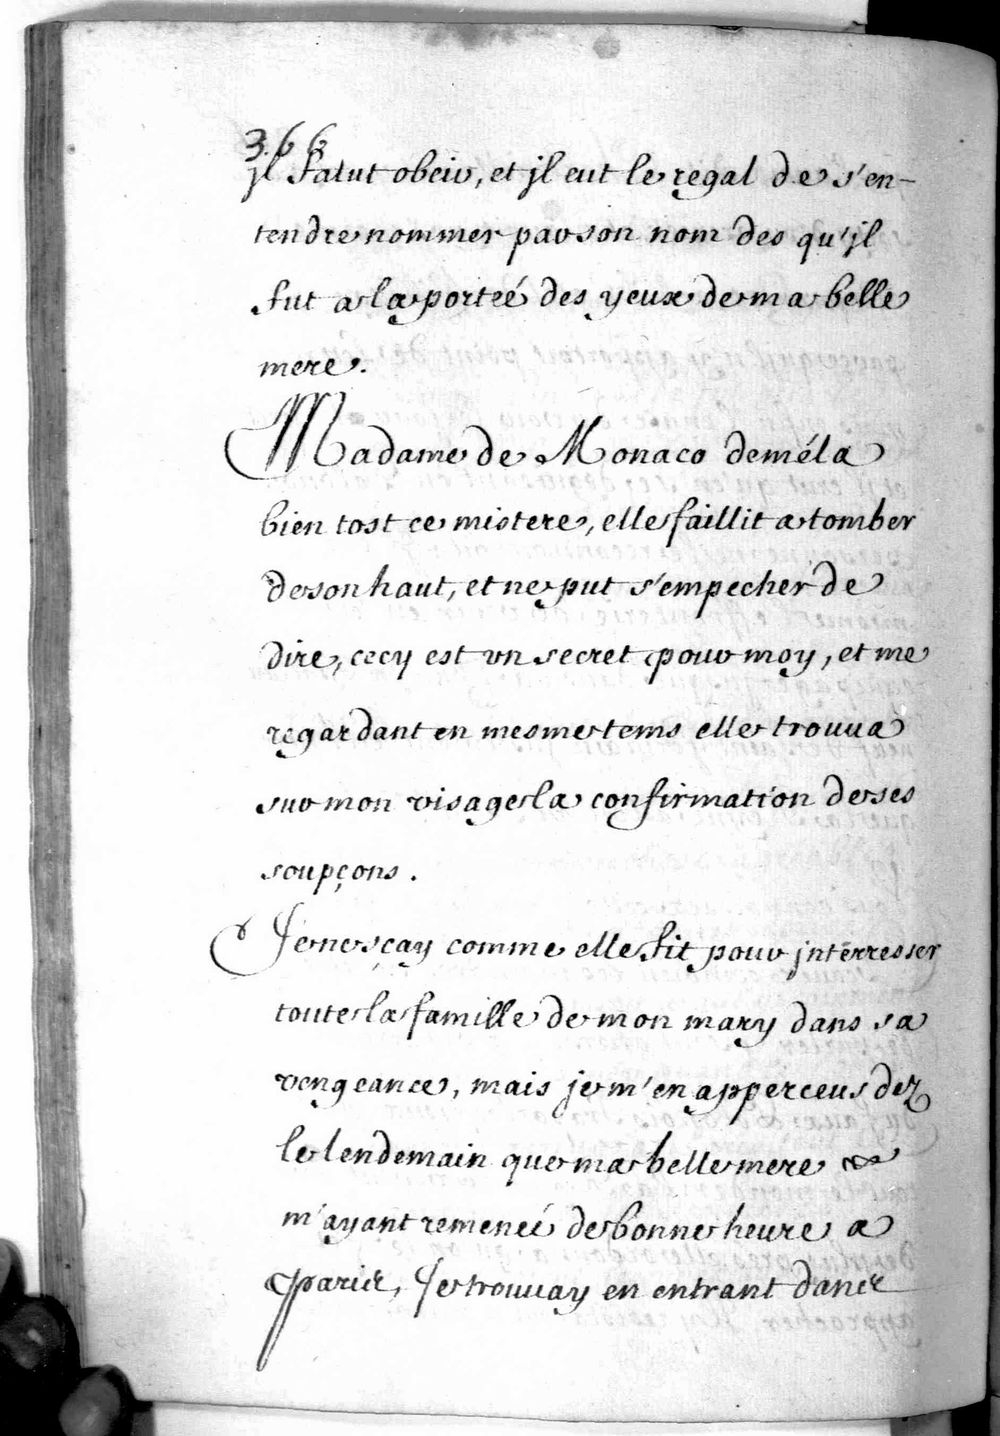 366
jl falut obeir, et jl eut le regal de s'en-
tendre nommer par son nom des qu'jl
fut a la porteé des yeux de ma belle
mere.
Madame de Monaco deméla
bien tost ce mistere, elle faillit a tomber
de son haut, et ne put s'empecher de
dire, cecy est vn secret pour moy, et me
regardant en mesme tems elle trouua
sur mon visage la confirmation de ses
soupçons.
Je ne sçay comme elle fit pour jnterresser
toute la famille de mon mary dans sa
vengeance, mais je m'en apperceus dez
le lendemain que ma belle mere
m'ayant remeneé de bonne heure a
Paris, Je trouuay en entrant dans